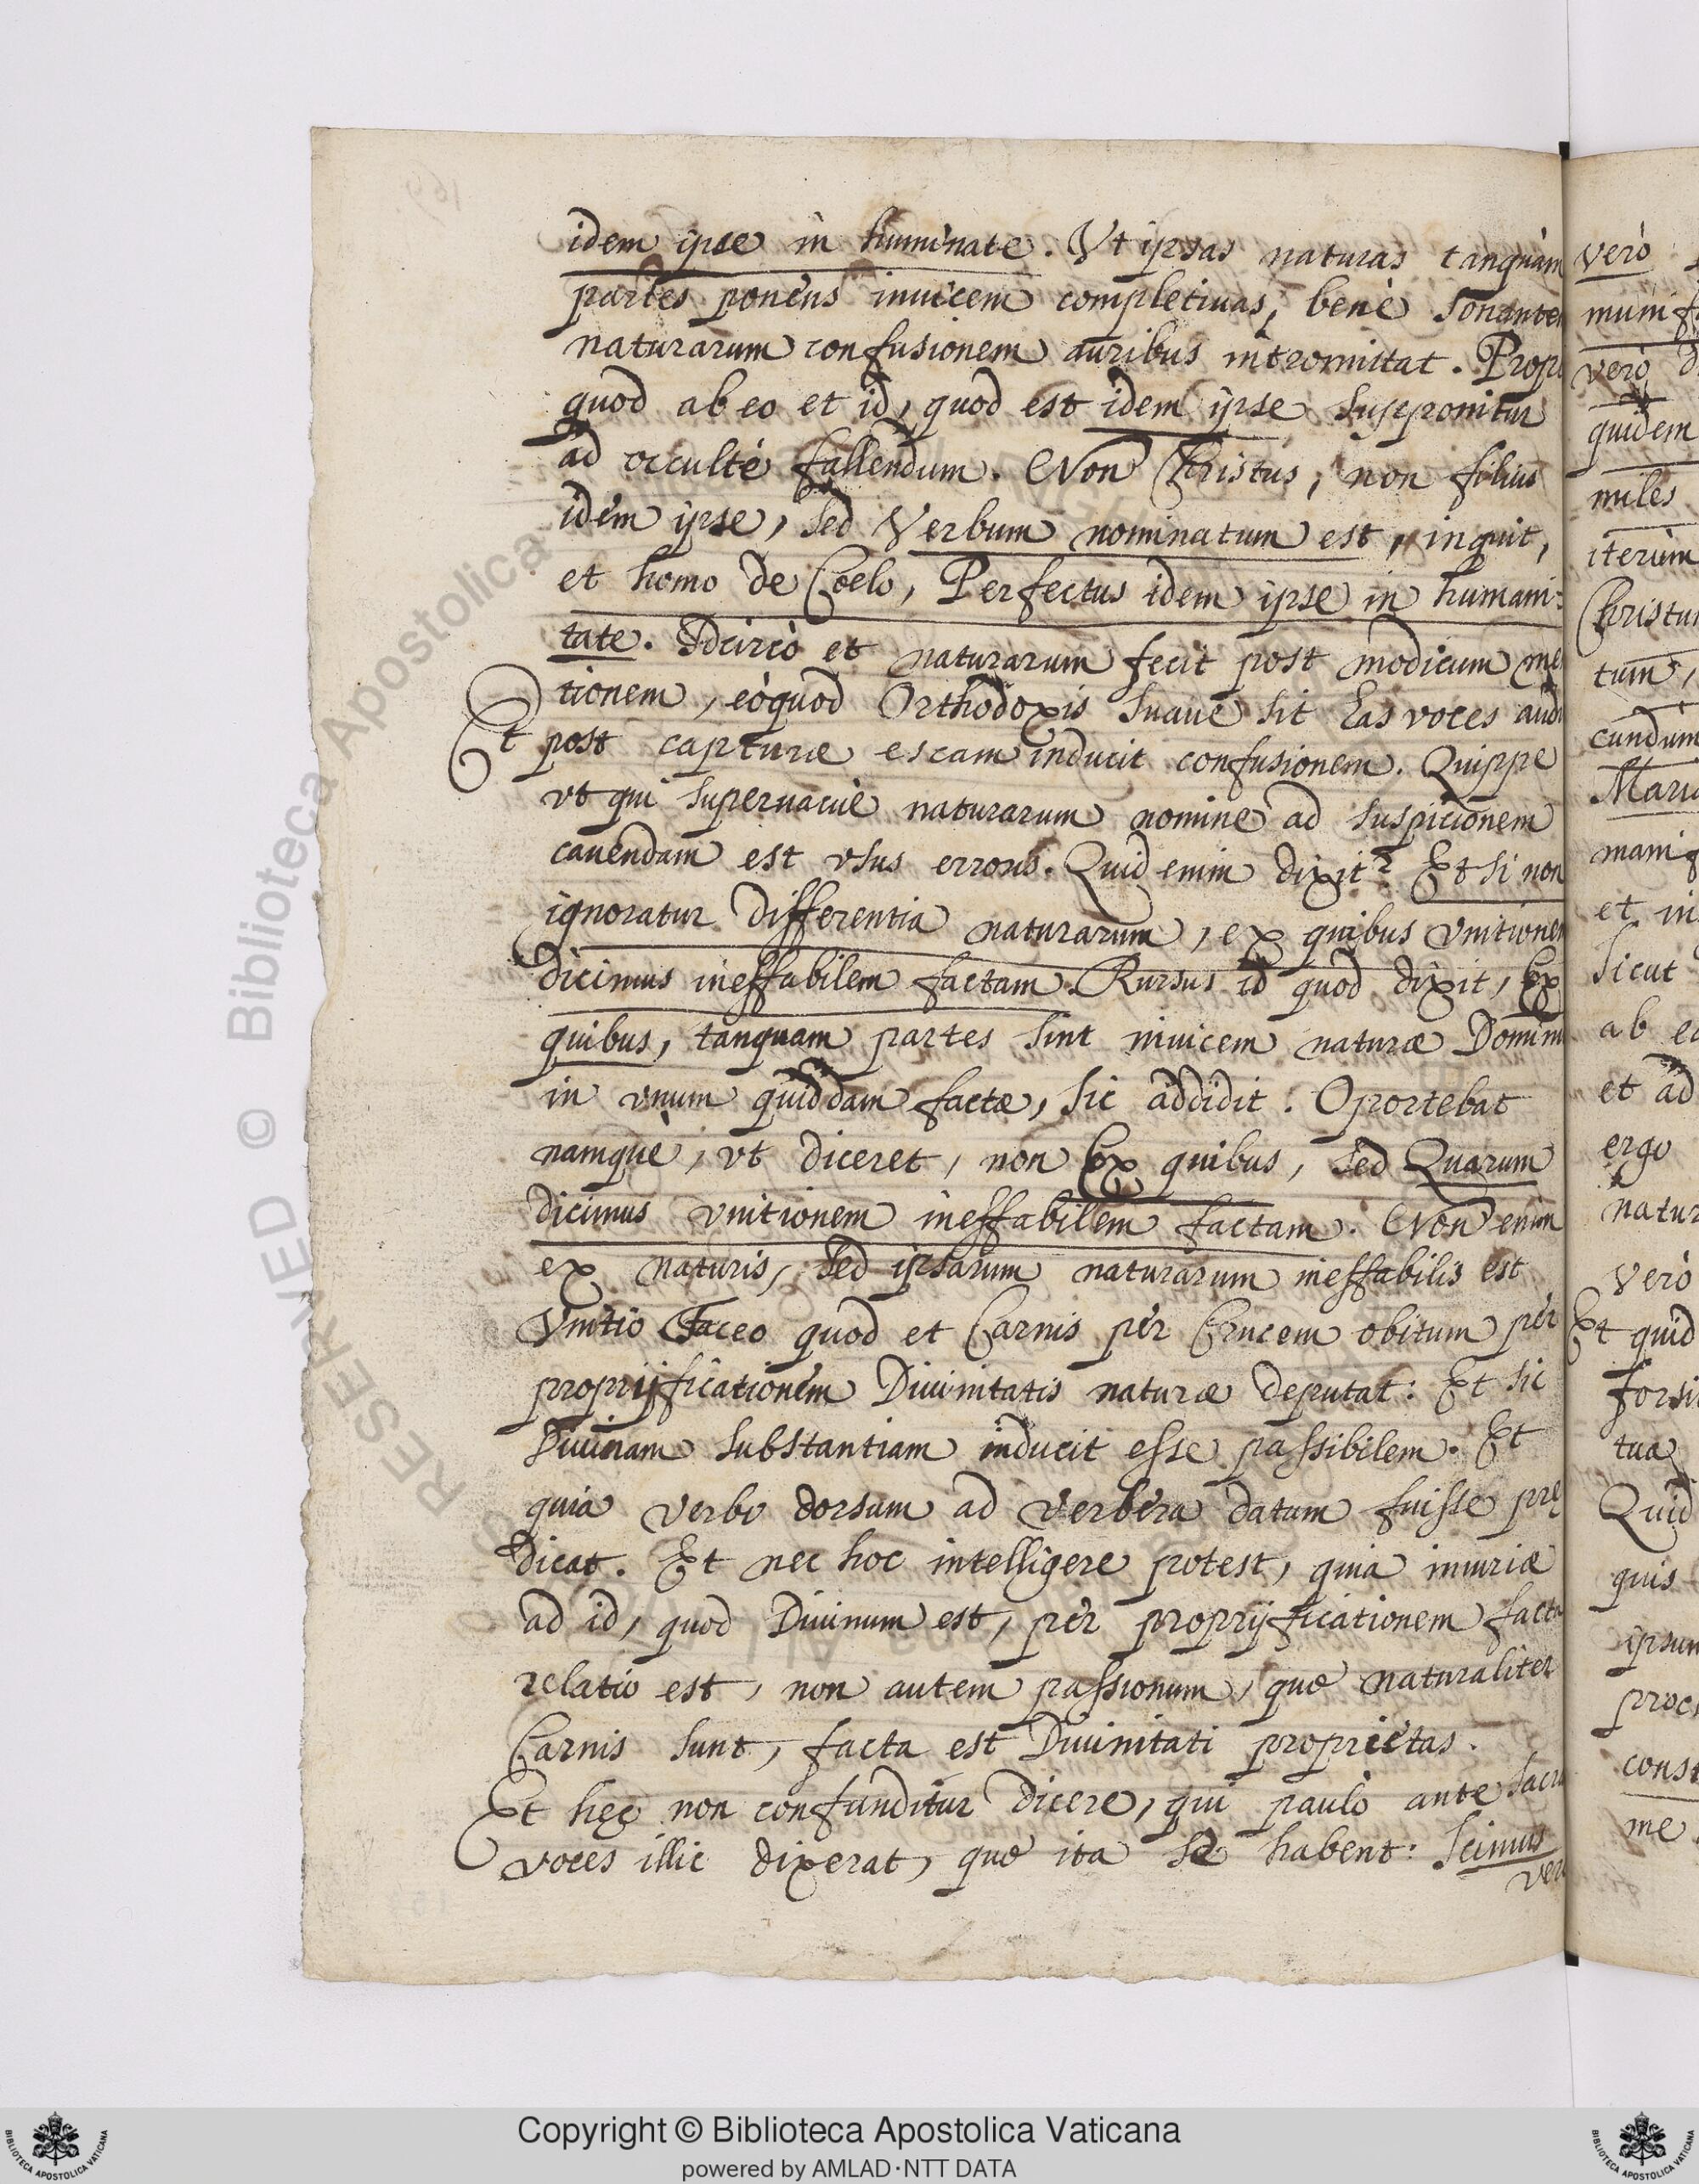 idem ipse in huminate. Vt ipsas naturas tanquàm
partes ponens inuicem completiuas, benè sonanter
naturarum confusionem auribus intromittat. Prop
quod ab eo et id, quod est idem ipse supponitur
ad occultè fallendum. Non Christus, non filius
idem ipse, sed Verbum nominatum est, inquit,
et homo de Coelo, Perfectus idem ipse in humani:
tate. Idcircò et naturarum fecit post modicum me
tionem, eòquod Orthodoxis suaue sit Eas voces audi
Et post capturæ escam inducit confusionem. Quippe
vt qui superuacuè naturarum nomine ad suspicionem
cauendam est vsus erroris. Quid enim dixit? Et si non
ignoratur differentia naturarum, ex quibus vnitionem
dicimus ineffabilem factam. Rursus id quod dixit, Ex
quibus, tanquam partes sint inuicem naturæ Domini
in vnum quiddam factæ, sic addidit. Oportebat
namquè, vt diceret, non Ex quibus, sed Quarum
dicimus vnitionem ineffabilem factam. Non enim
ex naturis, sed ipsarum naturarum ineffabilis est
Vnitio Taceo quod et Carnis per Crucem obitum per
proprijficationem Diuinitatis naturæ deputat: Et sic
Diuinam substantiam inducit esse passibilem. Et
quia verbo dorsum ad verbera datum fuisse prę
dicat. Et nec hoc intelligere potest, quia iniuriæ
ad id, quod Diuinum est, per proprijficationem facta
relatio est, non autem passionum, quæ naturaliter
Carnis sunt, facta est Diuinitati proprietas.
Et hęc non confunditur dicere, qui paulò ante sacr
voces illic dixerat, quæ ita se habent: Scimus
verò
verò
munif
verò d
quidem
miles
iterùm
Christum
tum,
cundùm
Maria
mani
et in
sicut
ab eo
et ad
ergo
natur
verò
Et quid
forsi
tua
Quid
quis
ipsum
proc
const
me
RESERVED © Biblioteca Apostolica
Copyright © Biblioteca Apostolica Vaticana
powered by AMLAD·NTT DATA
BIBLIOTECA APOSTOLICA VATICANA
BIBLIOTECA APOSTOLICA VATICANA